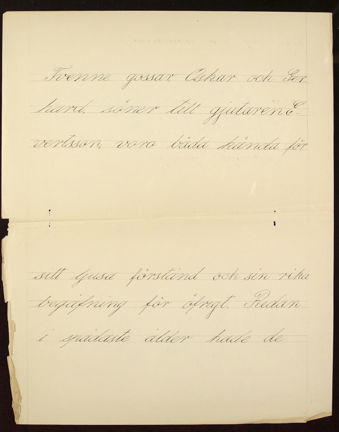 Tvenne gossar Oskar och Ger
hard, söner till gjutaren E-
vertsson, voro båda kända för
sitt ljusa förstånd och sin rika
begåfning för öfrigt. Redan
i spädaste ålder hade de